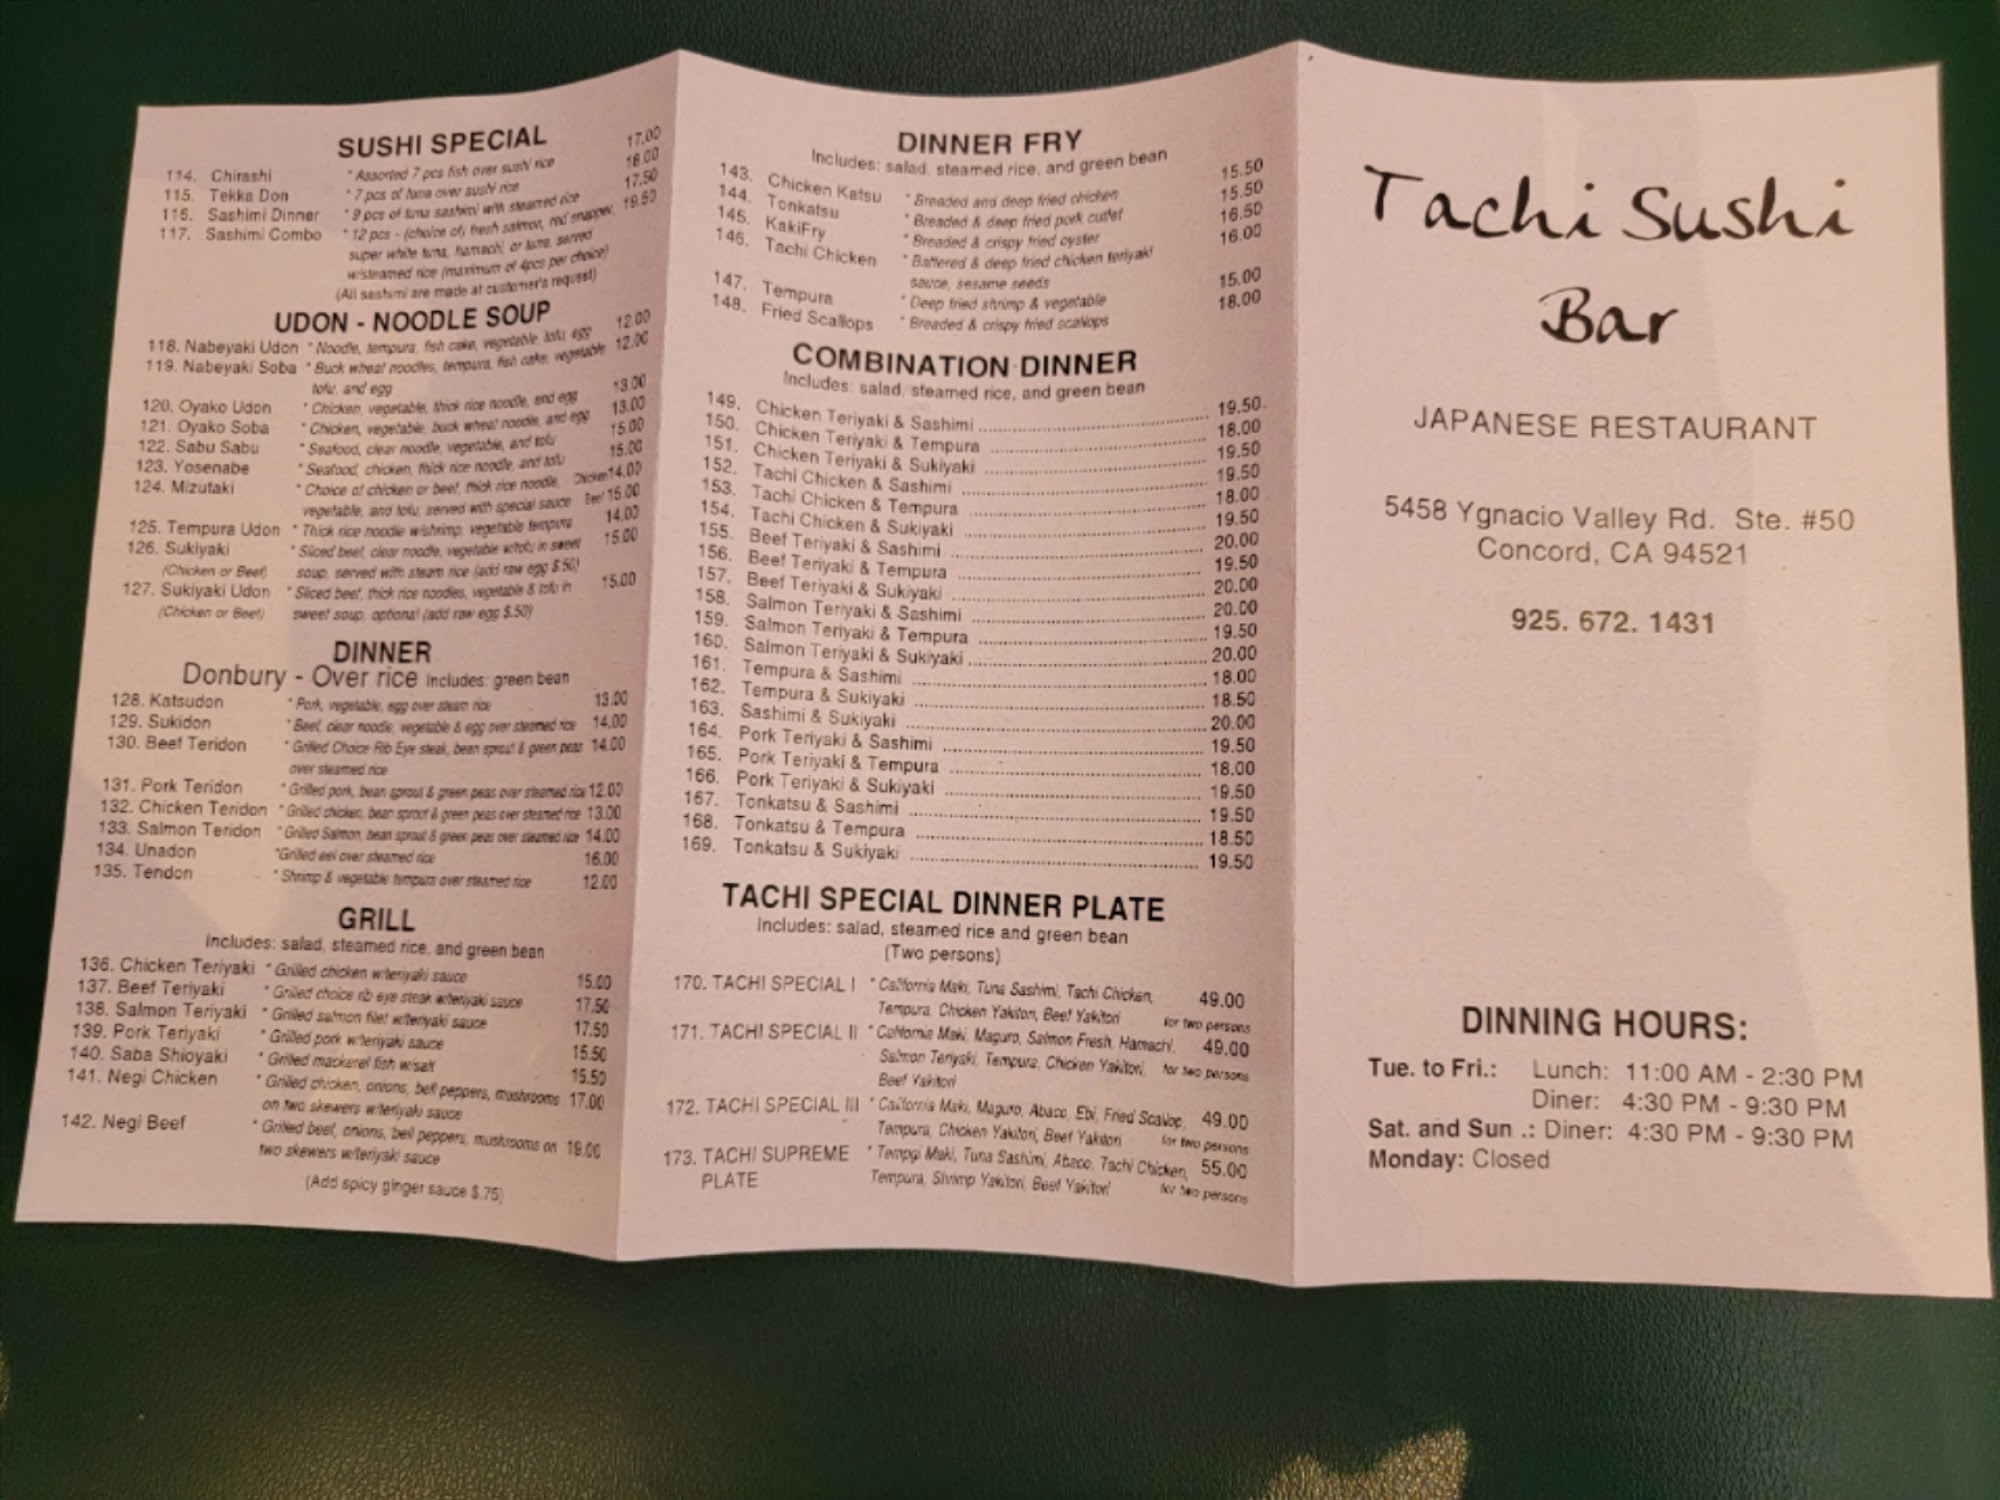 SUSHI SPECIAL
114. Chirashi * Assorted 7 pcs fish over sushi rice 17.00
115. Tekka Don * 7 pcs of tuna over sushi rice 18.00
116. Sashimi Dinner * 9 pcs of tuna sashimi with steamed rice 17.50
117. Sashimi Combo * 12 pcs - (choice of) fresh salmon, red snapper, 19.50
super white tuna, hamachi, or tuna, served
w/steamed rice (maximum of 4pcs per choice)
(All sashimi are made at customer's request)
UDON - NOODLE SOUP
118. Nabeyaki Udon * Noodle, tempura, fish cake, vegetable, tofu, egg 12.00
119. Nabeyaki Soba * Buck wheat noodles, tempura, fish cake, vegetable 12.00
tofu, and egg
120. Oyako Udon * Chicken, vegetable, thick rice noodle, and egg 13.00
121. Oyako Soba * Chicken, vegetable, buck wheat noodle, and egg 13.00
122. Sabu Sabu * Seafood, clear noodle, vegetable, and tofu 15.00
123. Yosenabe * Seafood, chicken, thick rice noodle, and tofu 15.00
124. Mizutaki * Choice of chicken or beef, thick rice noodle, Chicken 14.00
vegetable, and tofu, served with special sauce Beef 15.00
125. Tempura Udon * Thick rice noodle w/shrimp, vegetable tempura 14.00
126. Sukiyaki * Sliced beef, clear noodle, vegetable w/tofu in sweet 15.00
(Chicken or Beef) soup, served with steam rice (add raw egg $.50)
127. Sukiyaki Udon * Sliced beef, thick rice noodles, vegetable & tofu in 15.00
(Chicken or Beef) sweet soup, optional (add raw egg $.50)
DINNER
Donbury - Over rice Includes: green bean
128. Katsudon * Pork, vegetable, egg over steam rice 13.00
129. Sukidon * Beef, clear noodle, vegetable & egg over steamed rice 14.00
130. Beef Teridon * Grilled Choice Rib Eye steak, bean sprout & green peas 14.00
over steamed rice
131. Pork Teridon * Grilled pork, bean sprout & green peas over steamed rice 12.00
132. Chicken Teridon * Grilled chicken, bean sprout & green peas over steamed rice 13.00
133. Salmon Teridon * Grilled Salmon, bean sprout & green peas over steamed rice 14.00
134. Unadon *Grilled eel over steamed rice 16.00
135. Tendon * Shrimp & vegetable tempura over steamed rice 12.00
GRILL
Includes: salad, steamed rice, and green bean
136. Chicken Teriyaki * Grilled chicken w/teriyaki sauce 15.00
137. Beef Teriyaki * Grilled choice rib eye steak w/teriyaki sauce 17.50
138. Salmon Teriyaki * Grilled salmon filet w/teriyaki sauce 17.50
139. Pork Teriyaki * Grilled pork w/teriyaki sauce 15.50
140. Saba Shioyaki * Grilled mackerel fish w/salt 15.50
141. Negi Chicken * Grilled chicken, onions, bell peppers, mushrooms 17.00
on two skewers w/teriyaki sauce
142. Negi Beef * Grilled beef, onions, bell peppers, mushrooms on
two skewers w/teriyaki sauce
(Add spicy ginger sauce $.75)
DINNER FRY
Includes: salad, steamed rice, and green bean
143. Chicken Katsu * Breaded and deep fried chicken 15.50
144. Tonkatsu * Breaded & deep fried pork cutlet 15.50
145. KakiFry * Breaded & crispy fried oyster 16.50
146. Tachi Chicken * Battered & deep fried chicken teriyaki 16.00
sauce, sesame seeds
147. Tempura * Deep fried shrimp & vegetable 15.00
148. Fried Scallops * Breaded & crispy fried scallops 18.00
COMBINATION DINNER
Includes: salad, steamed rice, and green bean
149. Chicken Teriyaki & Sashimi 19.50
150. Chicken Teriyaki & Tempura 18.00
151. Chicken Teriyaki & Sukiyaki 19.50
152. Tachi Chicken & Sashimi 19.50
153. Tachi Chicken & Tempura 18.00
154. Tachi Chicken & Sukiyaki 19.50
155. Beef Teriyaki & Sashimi 20.00
156. Beef Teriyaki & Tempura 19.50
157. Beef Teriyaki & Sukiyaki 20.00
158. Salmon Teriyaki & Sashimi 20.00
159. Salmon Teriyaki & Tempura 19.50
160. Salmon Teriyaki & Sukiyaki 20.00
161. Tempura & Sashimi 18.00
162. Tempura & Sukiyaki 18.50
163. Sashimi & Sukiyaki 20.00
164. Pork Teriyaki & Sashimi 19.50
165. Pork Teriyaki & Tempura 18.00
166. Pork Teriyaki & Sukiyaki 19.50
167. Tonkatsu & Sashimi 19.50
168. Tonkatsu & Tempura 18.50
169. Tonkatsu & Sukiyaki 19.50
TACHI SPECIAL DINNER PLATE
Includes: salad, steamed rice and green bean
(Two persons)
170. TACHI SPECIAL I * California Maki, Tuna Sashimi, Tachi Chicken, 49.00
Tempura, Chicken Yakitori, Beef Yakitori for two persons
171. TACHI SPECIAL II * California Maki, Maguro, Salmon Fresh, Hamachi, 49.00
Salmon Teriyaki, Tempura, Chicken Yakitori, for two persons
Beef Yakitori
172. TACHI SPECIAL III * California Maki, Maguro, Abaco, Ebi, Fried Scallop, 49.00
Tempura, Chicken Yakitori, Beef Yakitori for two persons
173. TACHI SUPREME * Tempgi Maki, Tuna Sashimi, Abaco, Tachi Chicken, 55.00
PLATE Tempura, Shrimp Yakitori, Beef Yakitori for two persons
Tachi Sushi
Bar
JAPANESE RESTAURANT
5458 Ygnacio Valley Rd. Ste. #50
Concord, CA 94521
925. 672. 1431
DINNING HOURS:
Tue. to Fri.: Lunch: 11:00 AM - 2:30 PM
Diner: 4:30 PM - 9:30 PM
Sat. and Sun .: Diner: 4:30 PM - 9:30 PM
Monday: Closed